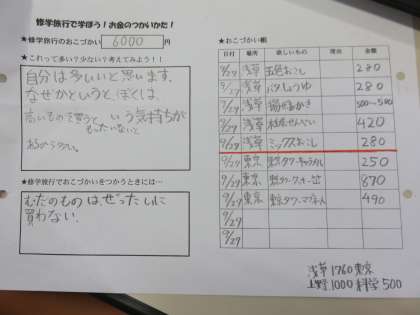 修学旅行で学ぼう!お金のつかいかた!
★修学旅行のおこづかい 6000 円
★これって多い?少ない?考えてみよう!!
自分は多いいと思います。
なぜかというと、ぼくは、
高いものを買うと、いう気持ちが
もったいないと
あるからです。
★修学旅行でおこづかいをつかうときには…
むだのものは、ぜったいに
買わない。
★おこづかい帳
日付 場所 欲しいもの 理由 金額
9/27 浅草 五色おこし 280
9/27 浅草 280
9/27 浅草 500~540
9/27 浅草 せんべい 420
9/27 浅草 ミックスおこし 280
9/27 東京 東京タワーキャラメル 250
9/27 東京 東京タワークッキー 870
9/27 東京 東京タワーマグネット 490
9/27
9/27
浅草 1760 東京
上野 1000 科学 500